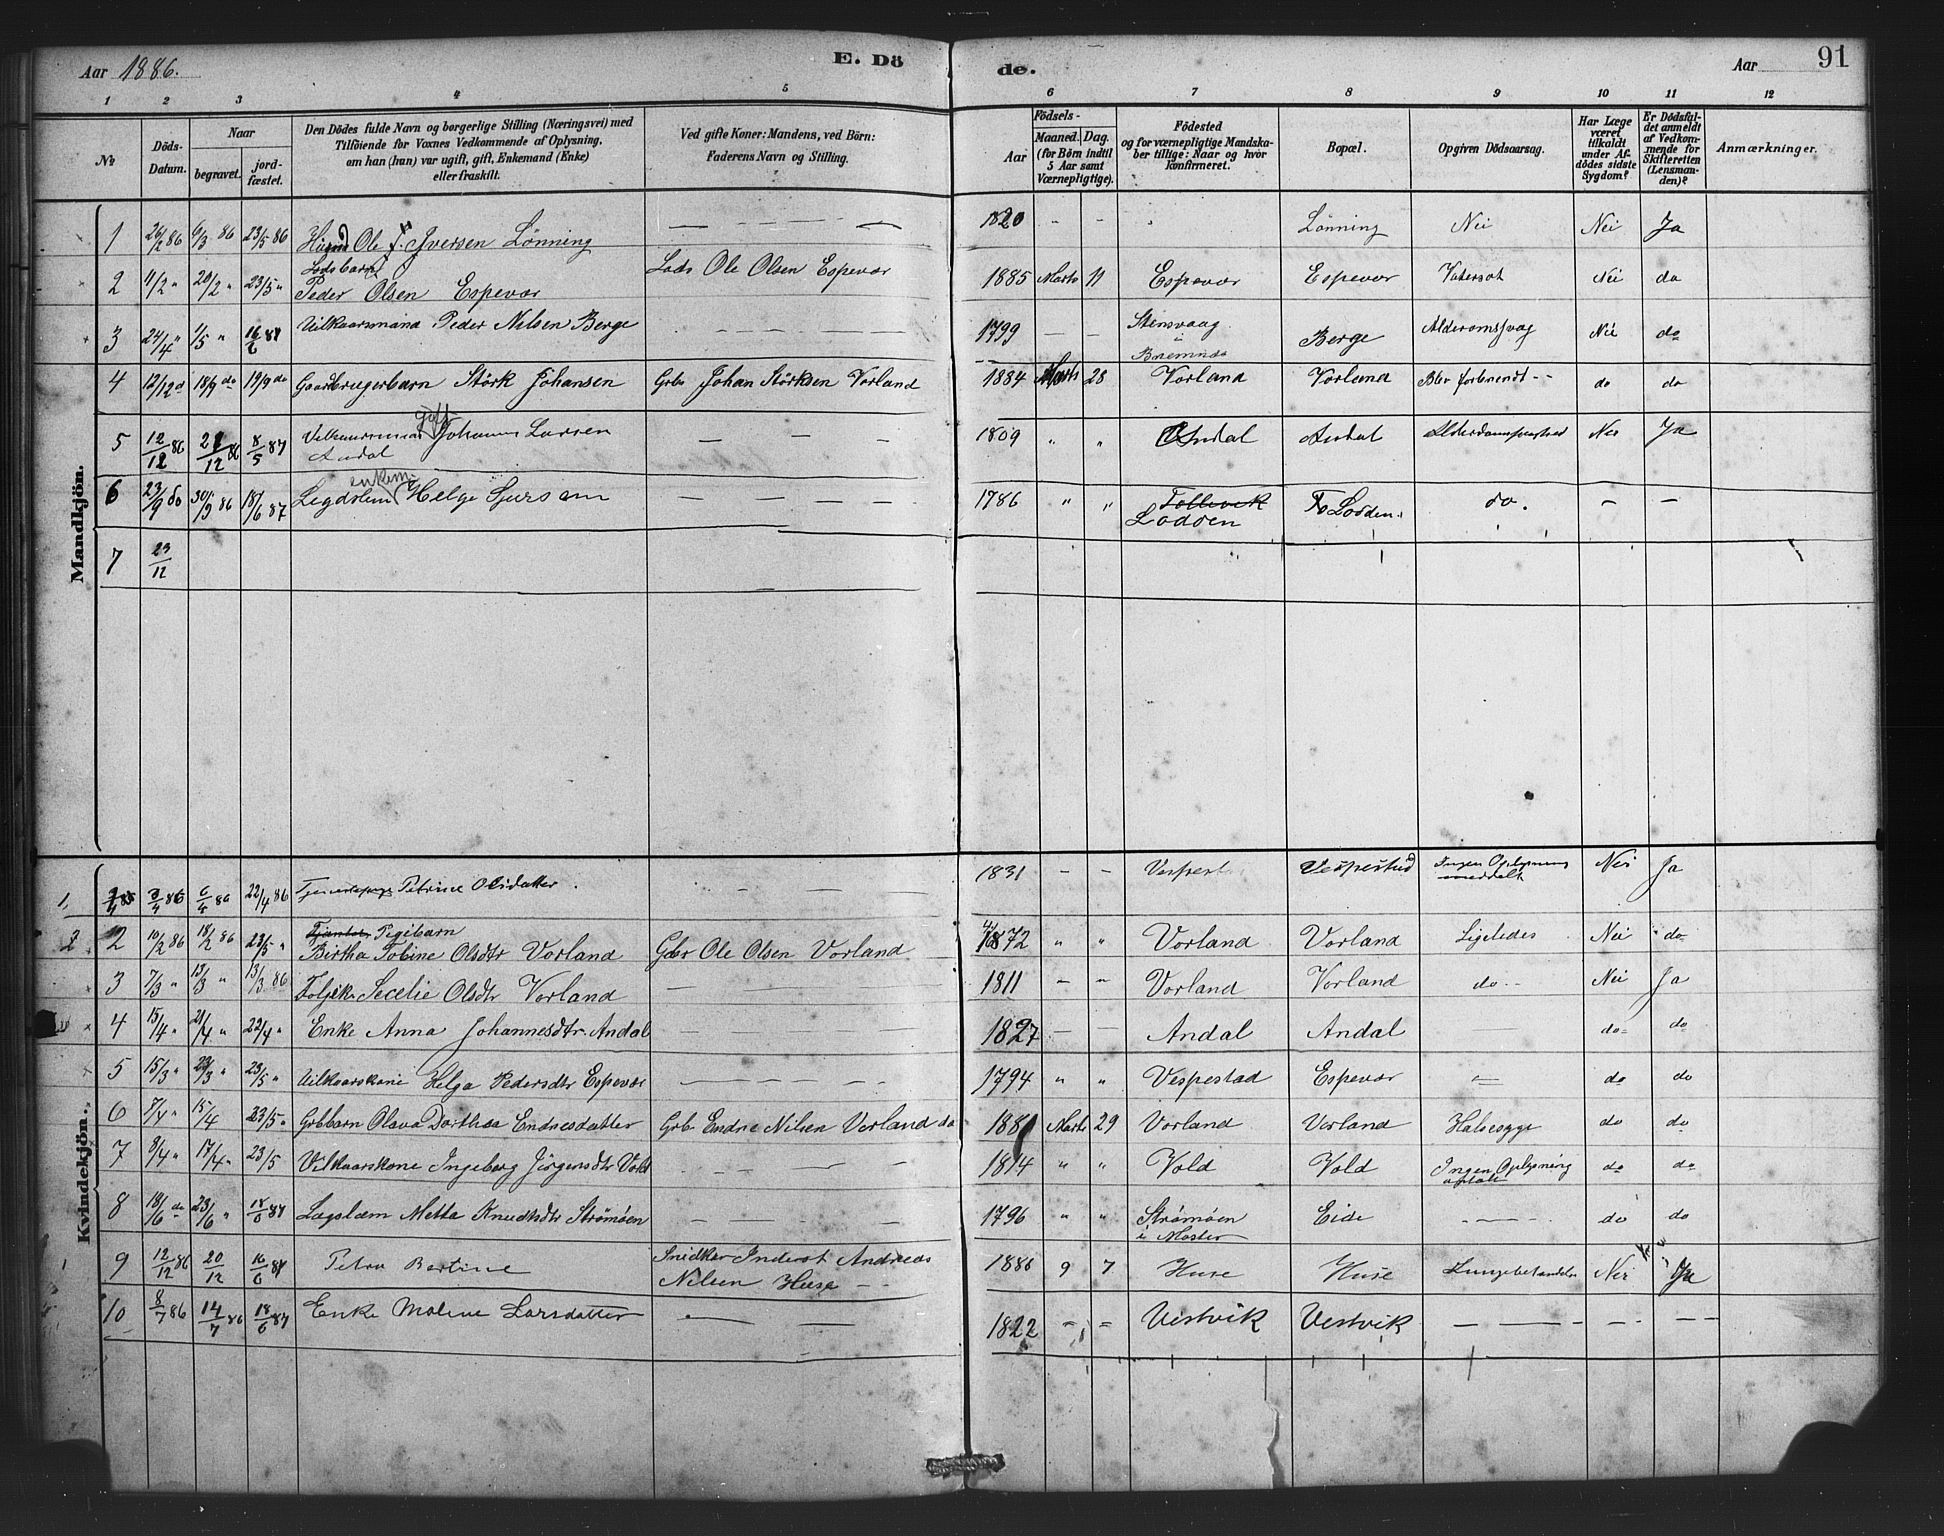 Aar 1886. E. Dö de. Aar 91
1 2 3 4 5 6 7 8 9 10 11 12
№
Döds-
Datum.
Naar
begravet.
jord-
fæstet.
Den Dödes fulde Navn og borgerlige Stilling (Næringsvei) med
Tilföiende for Voxnes Vedkommende af Oplysning,
om han (hun) var ugift, gift, Enkemand (Enke)
eller fraskilt.
Ved gifte Koner: Mandens, ved Börn:
Faderens Navn og Stilling.
Födsels-
Aar
Maaned. Dag.
(for Börn indtil
5 Aar samt
Værnepligtige).
Födested
og for værnepligtige Mandska-
ber tillige: Naar og hvor
konfirmeret.
Bopæl.
Opgiven Dödsaarsag.
Har Læge
været
tilkaldt
under Af-
dödes sidste
Sygdom?
Er Dödsfal-
det anmeldt
af Vedkom-
mende for
Skifteretten
(Lensman-
den)?
Anmærkninger.
Mandkjön.
1 26/2 86 6/3 86 23/5 86 Ole Iversen Lönning — — — — 1820 - - Lönning Nei Nei Ja
2 11/2 " 20/2 " 23/5 " Lodsbarn Peder Olsen Espevær Lods Ole Olsen Espevær 1885 Marts 11 Espevær Espevær Vatersot Nei do
3 24/4 " 1/5 " 16/6 87 Vilkaarsmand Peder Nelsen Berge - — — — 1799 — — Stensvaag i Bremnes Berge Alderomssvag Nei do
4 12/12 d 18/9 do 19/9 do Gaardbrugerbarn Störk Johansen Grbr Johan Störksen Vorland 1884 Marts 28 Vorland Vorland Blev forbrendt - - do do
5 12/12 86 21/12 86 8/5 87 Vilkaarsmand gift Johannes Larsen Andal — — — 1809 " " Andal Andal Nei Ja
6 23/9 do 30/9 86 18/6 87 Legdslem enkem. Helge Sjursen — — — 1786 " " Follevik Lodden Lodden. do. — —
7 23/12
Kvindekjön.
1, 3/4 86 6/4 86 22/4 86 Petrine Olsdatter. - — — 1831 - - Vespestad Ingen Oplysning meddelt Nei Ja
2 2 10/2 86 18/2 86 23/5 " Pigebarn Birtha Tobine Olsdtr Vorland Gbr Ole Olsen Vorland 1872 " " Vorland Vorland Ligeledes Nei do
3 7/3 " 13/3 " 13/3 86 Secelie Olsdtr Vorland — — — 1811 - - Vorland Vorland do - - Nei Ja
4 15/4 " 21/4 " 22/4 " Enke Anna Johannesdtr Andal — — — 1827 — — Andal Andal do do
5 15/3 " 23/3 " 23/5 " Vilkaarskone Helga Pedersdtr Espevær — — — 1794 " " Vespestad Espevær — do do
6 7/4 " 15/4 23/5 " Grbbarn Olava Dorthea Endresdatter Grbr Endre Nilsen Vorland do 1881 Marts 29 Vorland Vorland Halsesyge do do
7 8/4 " 17/4 " 23/5 Vilkaarskone Ingeborg Jörgensdtr Vold - — — 1814 " " Vold Vold Ingen Oplysning do do
8 18/6 do 23/6 " 18/6 87 Lægslæm Metta Knudtsdtr Strømøen — — — 1796 " " Strømøen i Moster Eide - - - - do do
9 12/12 86 20/12 16/6 87 Petra Bertine Snidker Inderst Andreas Nilsen Huse - - 1886 9 7 Huse Huse Nei Ja
10 8/7 86 14/7 86 18/6 87 Enke Malene Larsdatter — — 1822 - - Vestvik Vestvik — — — — — —